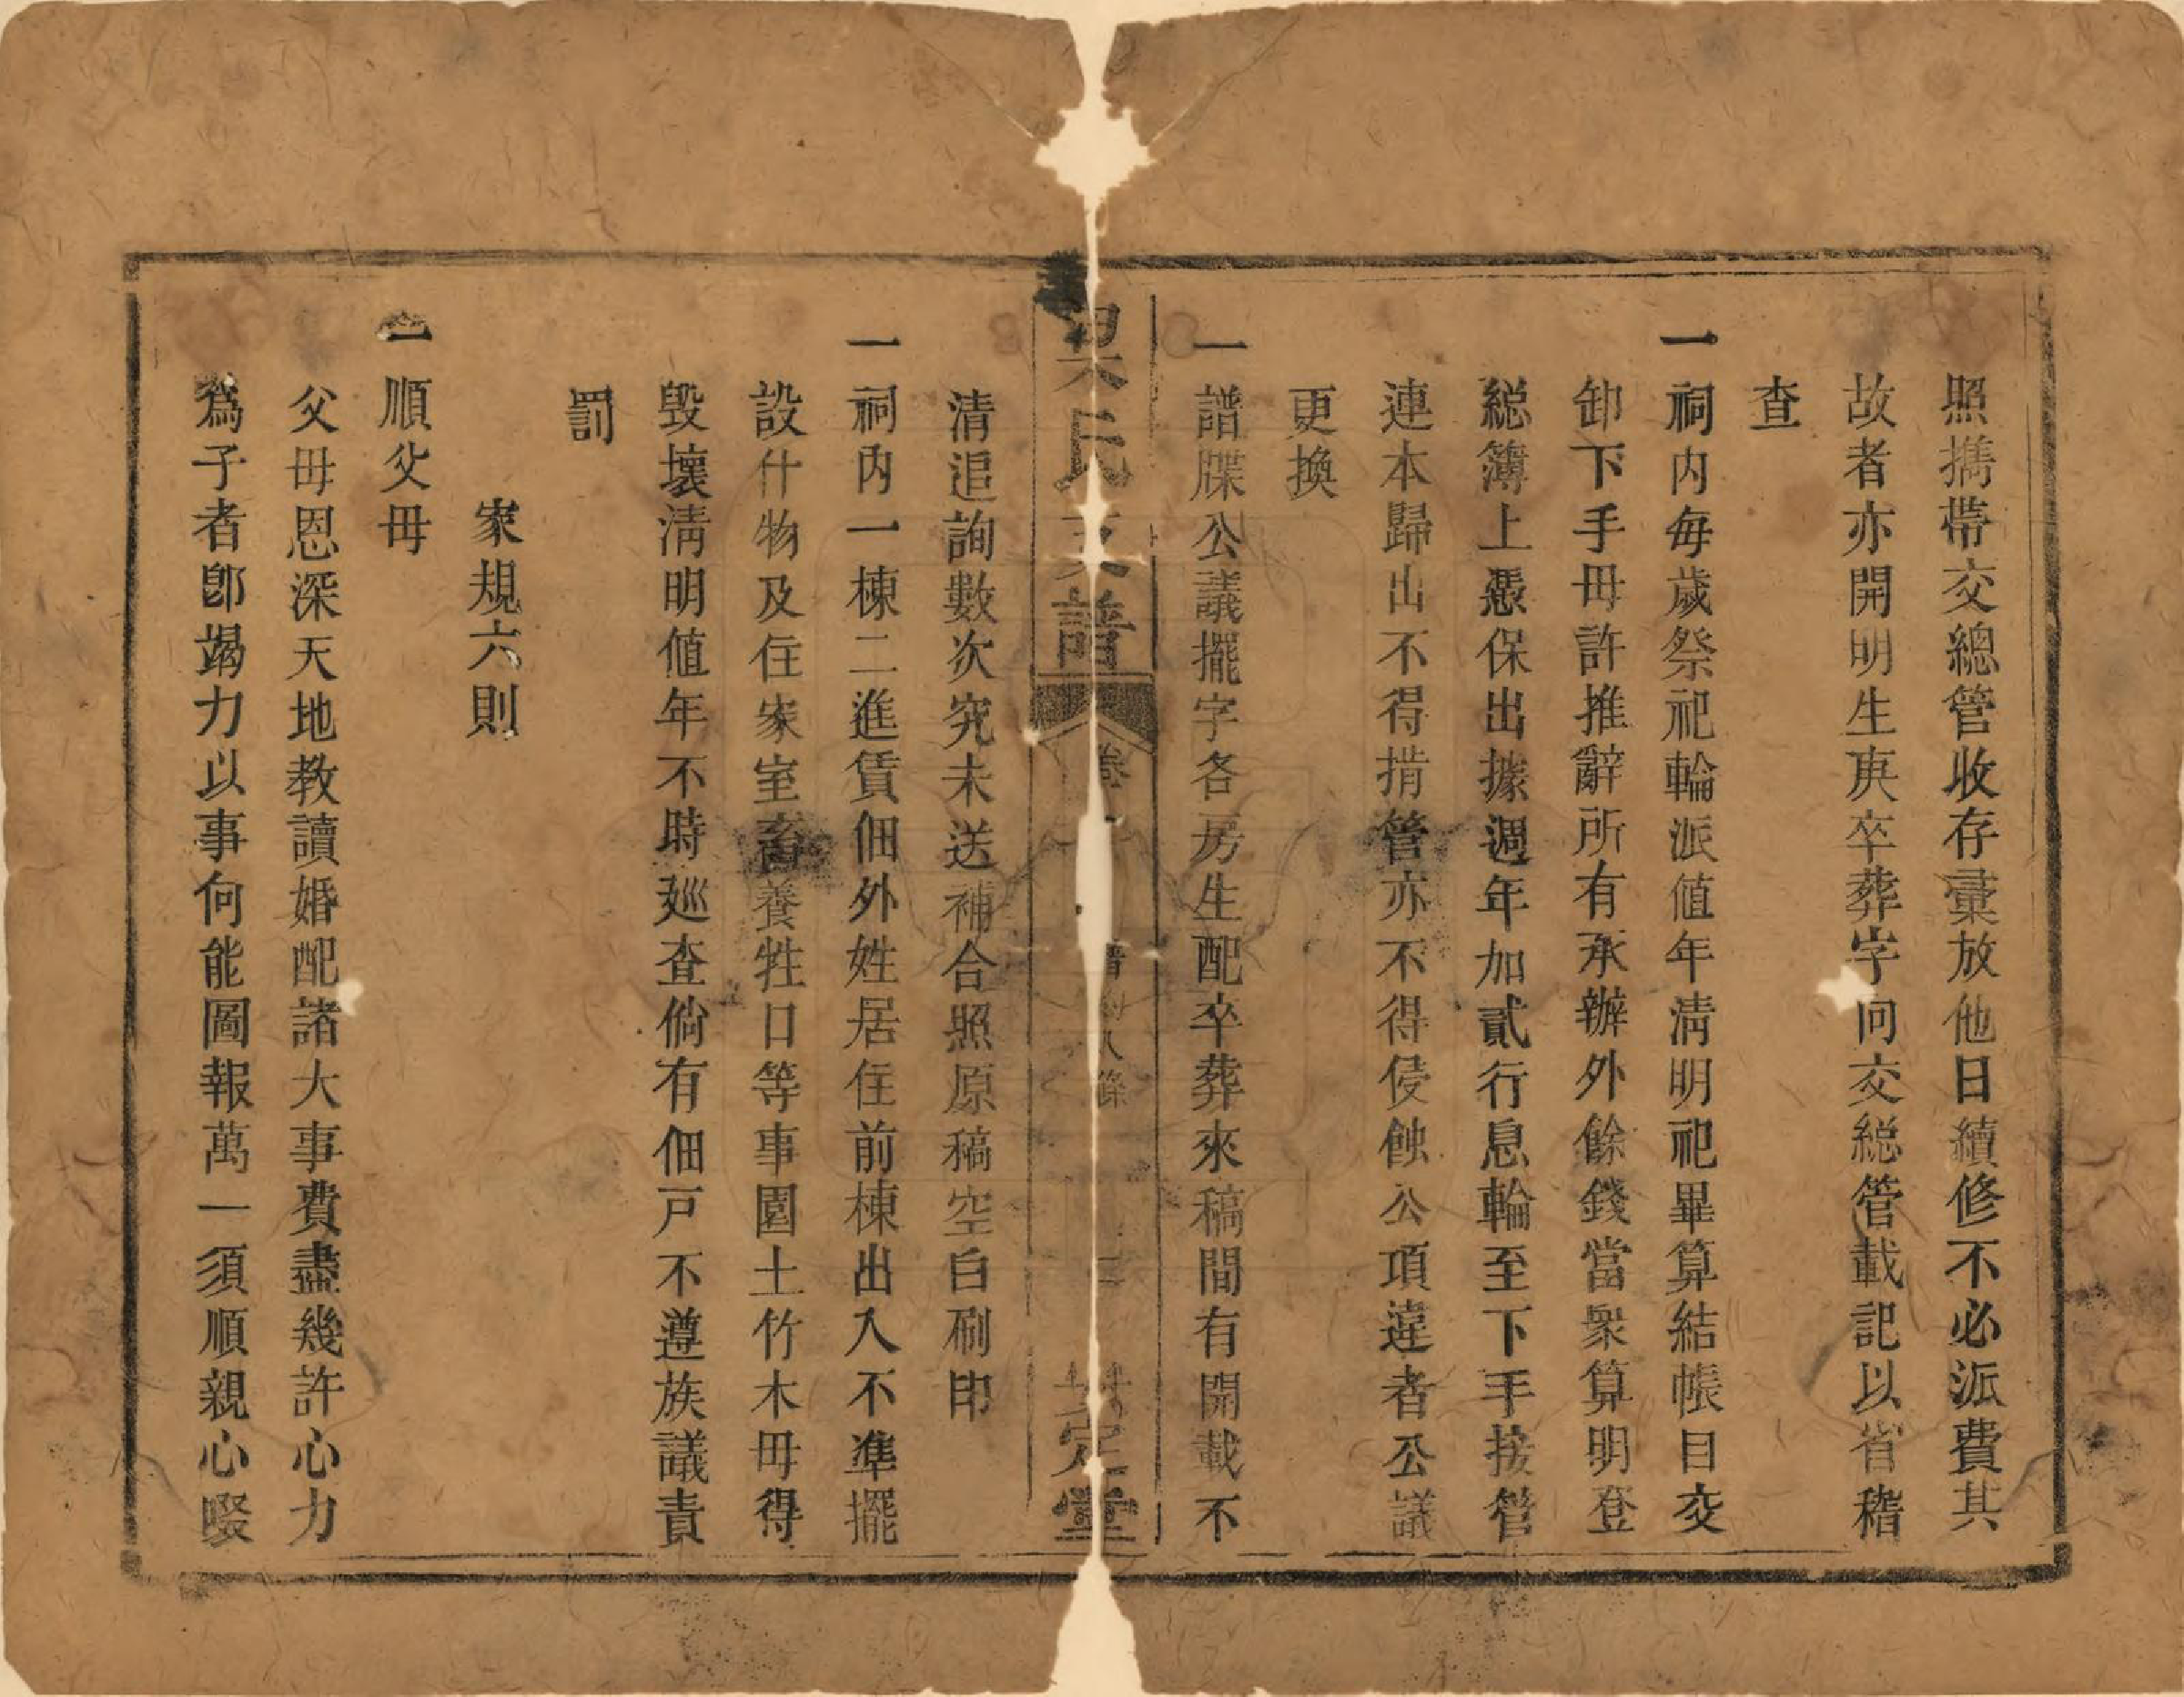 照擕帶交總管收存彚放他日續修不必派費其
故者亦開明生庚卒葬字向交総管載記以省稽
查
一祠内每歲祭祀輪派値年淸明祀畢算結帳目交
卸下手毋許推辭所有承辦外餘錢當衆算明登
総簿上憑保出據週年加貳行息輪至下手接管
連本歸出不得掯管亦不得侵蝕公項違者公議
更換
一譜牒公議擺字各房生配卒葬來稿間有開載不
吳氏支譜
卷
八條
二
定堂
清追詢數次究未送補合照原稿空白刷印
一祠内一棟二進賃佃外姓居住前棟出入不準擺
設什物及住家室畜養牲口等事園土竹木毋得
毁壞淸明値年不時廵查倘有佃戸不遵族議責
罰
家規六則
一順父毋
父毋恩深天地教讀婚配諸大事費盡幾許心力
爲子者卽竭力以事何能圖報萬一須順親心啜